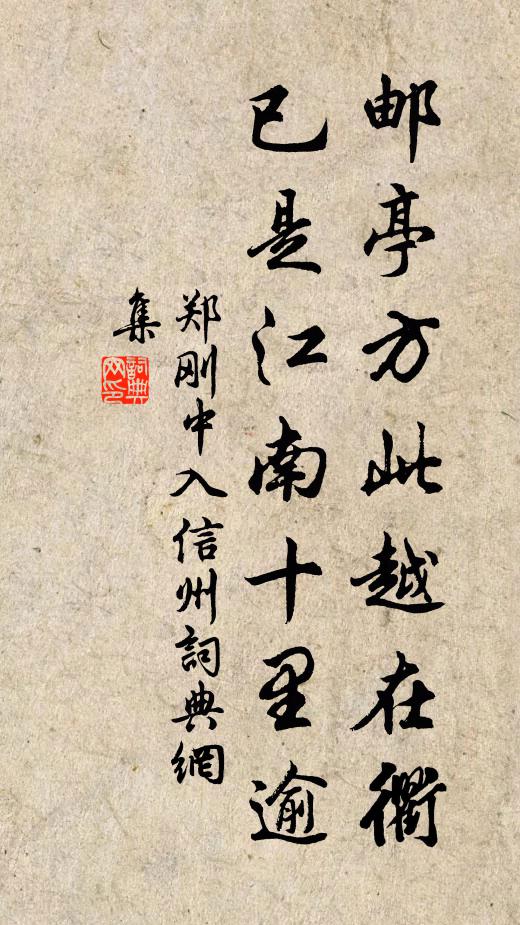 邮亭方此越在衢
已是江南十里逾
郑刚中入信州詞典網
集
詞典
网印